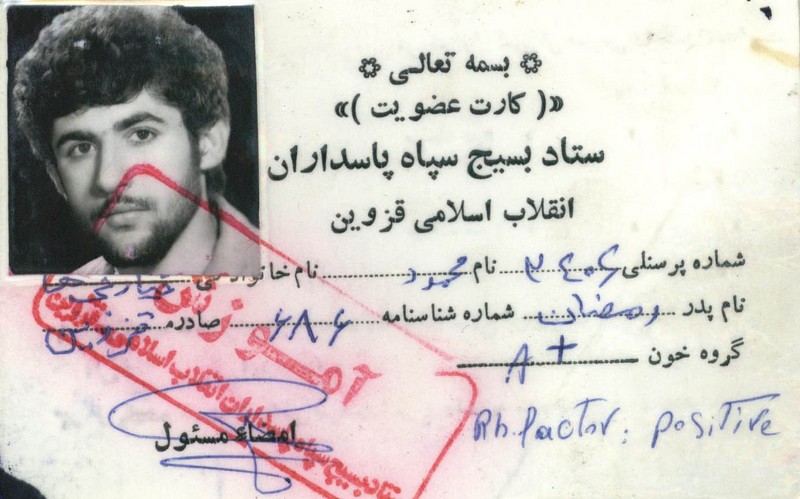 بسمه تعالی
«( کارت عضویت )»
ستاد بسیج سپاه پاسداران
انقلاب اسلامی قزوین
شماره پرسنلی ... نام محمود نام خانوادگی
نام پدر رمضان شماره شناسنامه ۶۸۶ صادره قزوین
گروه خون A+
Rh.factor: positive
امضاء مسئول
آموزش
ستاد بسیج سپاه پاسداران انقلاب اسلامی قزوین